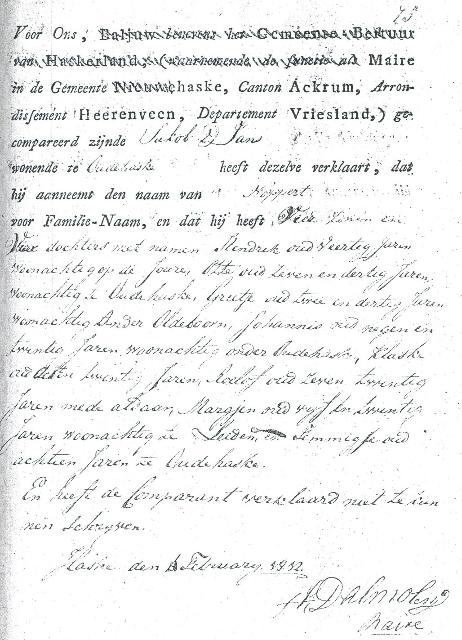 23
Voor Ons, Baljuw benevens het Gemeente-Bestuur
van Haskerland, (waarnemende de functie als Maire
in de Gemeente Nieuwehaske, Canton Ackrum, Arron-
dissement Heerenveen, Departement Vriesland,) ge-
compareerd zijnde Jakob D Jans
wonende te Oudehaske heeft dezelve verklaart, dat
hij aanneemt den naam van Hoppert
voor Familie-Naam, en dat hij heeft Vier Zonen en
Vier dochters met namen Hendrek oud Veertig Jaren
woonachtig op de Joure, Otte oud Zeven en dertig Jaren,
woonachtig te Oudehaske, Grietje oud twee en dertig Jaren
woonachtig Onder Oldeboorn, Johannis oud negen en
twintig Jaren, woonachtig onder Oudehaske, Klaske
oud twintig Jaren, Roelof oud Zeven twentig
Jaren mede aldaar, Margjen oud vijf En twentig
Jaren woonachtig te Leiden, en Jimmigje oud
achtien Jaren te Oudehaske.
En heeft de Comparant verklaard niet te kun
nen Schryven.
Haske den February 1812
Dalmolen
Maire